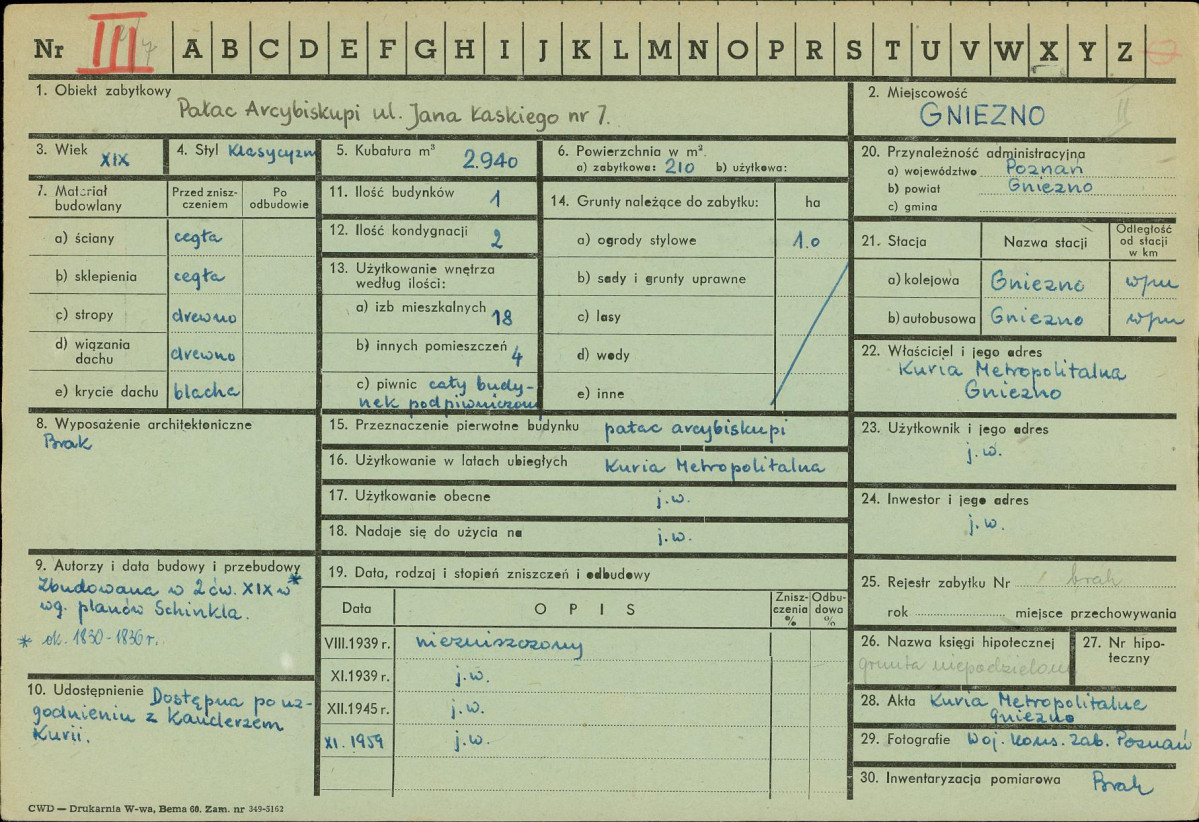 Nr III A B C D E F G H I J K L M N O P R S T U V W X Y Z
1. Obiekt zabytkowy
Pałac Arcybiskupi ul. Jana Łaskiego nr 7.
2. Miejscowość
GNIEZNO
II
3. Wiek XIX
4. Styl Klasycyzm
5. Kubatura m³ 2.940
6. Powierzchnia w m².
a) zabytkowa: 210 b) użytkowa:
20. Przynależność administracyjna
a) województwo Poznań
b) powiat Gniezno
c) gmina
7. Materiał budowlany
Przed zniszczeniem
Po odbudowie
a) ściany cegła
b) sklepienia cegła
c) stropy drewno
d) wiązania dachu drewno
e) krycie dachu blacha
11. Ilość budynków 1
12. Ilość kondygnacji 2
13. Użytkowanie wnętrza
według ilości:
a) izb mieszkalnych 18
b) innych pomieszczeń 4
c) piwnic cały budy-
nek podpiwniczony
14. Grunty należące do zabytku: ha
a) ogrody stylowe 1.0
b) sady i grunty uprawne
c) lasy
d) wody
e) inne
21. Stacja
Nazwa stacji
Odległość od stacji w km
a) kolejowa Gniezno wpm
b) autobusowa Gniezno wpm
22. Właściciel i jego adres
Kuria Metropolitalna
Gniezno
8. Wyposażenie architektoniczne
Brak
15. Przeznaczenie pierwotne budynku pałac arcybiskupi
16. Użytkowanie w latach ubiegłych Kuria Metropolitalna
17. Użytkowanie obecne j.w.
18. Nadaje się do użycia na j.w.
23. Użytkownik i jego adres
j.w.
24. Inwestor i jego adres
j.w.
9. Autorzy i data budowy i przebudowy
Zbudowana w 2 ćw. XIX w *
wg. planów Schinkla.
* ok. 1830-1836 r.
10. Udostępnienie Dostępna po uz-
godnieniu z Kanclerzem
Kurii.
19. Data, rodzaj i stopień zniszczeń i odbudowy
Data
OPIS
Zniszczenia %
Odbudowa %
VIII.1939 r. niezniszczony
XI.1939 r. j.w.
XII.1945 r. j.w.
XI.1959 j.w.
25. Rejestr zabytku Nr brak
rok miejsce przechowywania
26. Nazwa księgi hipotecznej
grunta niepodzielone
27. Nr hipoteczny
28. Akta Kuria Metropolitalna
Gniezno
29. Fotografie Woj. Kons. Zab. Poznań
30. Inwentaryzacja pomiarowa Brak
CWD — Drukarnia W-wa, Bema 60. Zam. nr 349-5162